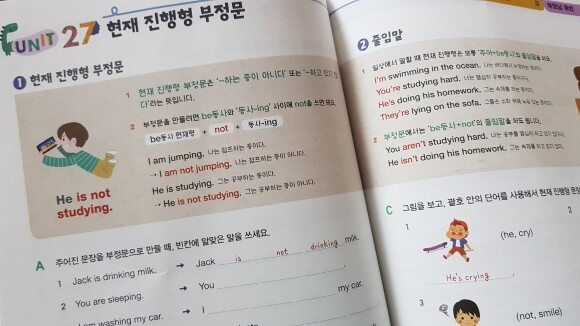 UNIT 27 현재 진행형 부정문
1 현재 진행형 부정문
1 현재 진행형 부정문은 '~하는 중이 아니다' 또는 '~하고 있지
다'라는 뜻입니다.
2 부정문을 만들려면 be동사와 '동사-ing' 사이에 not을 쓰면 돼요.
be동사 현재형 + not + 동사-ing
I am jumping. 나는 점프하는 중이다.
→ I am not jumping. 나는 점프하는 중이 아니다.
He is studying. 그는 공부하는 중이다.
→ He is not studying. 그는 공부하는 중이 아니다.
He is not
studying.
A 주어진 문장을 부정문으로 만들 때, 빈칸에 알맞은 말을 쓰세요.
1 Jack is drinking milk. → Jack is not drinking milk.
2 You are sleeping. → You
I am washing my car. → I my car.
2 줄임말
1 일상에서 말할 때 현재 진행형은 보통 '주어+be동사'의 줄임말을 써요.
I'm swimming in the ocean. 나는 바다에서 수영하는 중이다.
You're studying hard. 너는 열심히 공부하는 중이다.
He's doing his homework. 그는 숙제를 하는 중이다.
They're lying on the sofa. 그들은 소파 위에 누워 있는 중이다.
2 부정문에서는 'be동사+not'의 줄임말을 쓸 수도 있어요.
You aren't studying hard.
He isn't doing his homework.
C 그림을 보고, 괄호 안의 단어를 사용해서 현재 진행형 문
1 (he, cry)
He's crying.
3 (not, smile)